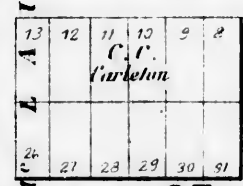 13 12 11 10 9 8
C. C.
Carleton
26 27 28 29 30 31